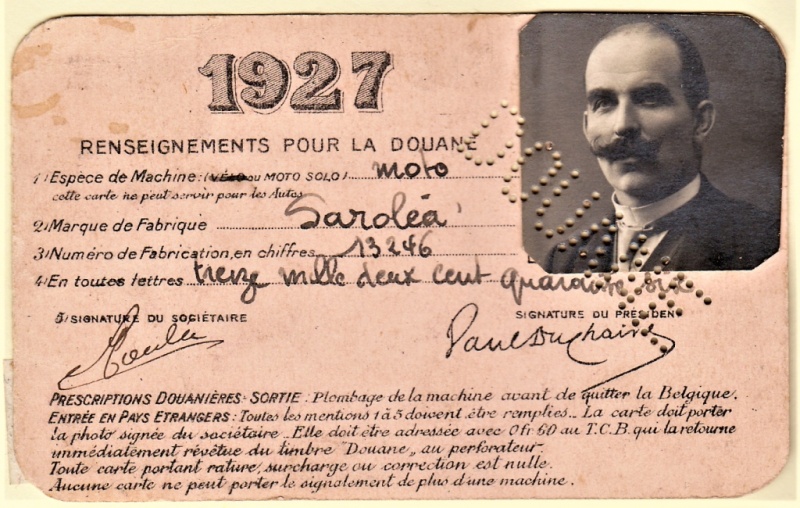 1927
RENSEIGNEMENTS POUR LA DOUANE
1) Espèce de Machine: (VÉLO OU MOTO SOLO) moto
cette carte ne peut servir pour les Autos
2) Marque de Fabrique Saroléa
3) Numéro de Fabrication, en chiffres 13246
4) En toutes lettres treize mille deux cent quarante six
5) SIGNATURE DU SOCIÉTAIRE SIGNATURE DU PRÉSIDENT
Paul Duchaine
PRESCRIPTIONS DOUANIÈRES - SORTIE : Plombage de la machine avant de quitter la Belgique.
ENTRÉE EN PAYS ETRANGERS : Toutes les mentions 1 à 5 doivent être remplies.. La carte doit porter
la photo signée du sociétaire.. Elle doit être adressée avec 0 fr 60 au T.C.B. qui la retourne
immédiatement révêtue du timbre "Douane,, au perforateur.
Toute carte portant rature, surcharge ou correction est nulle.
Aucune carte ne peut porter le signalement de plus d'une machine.